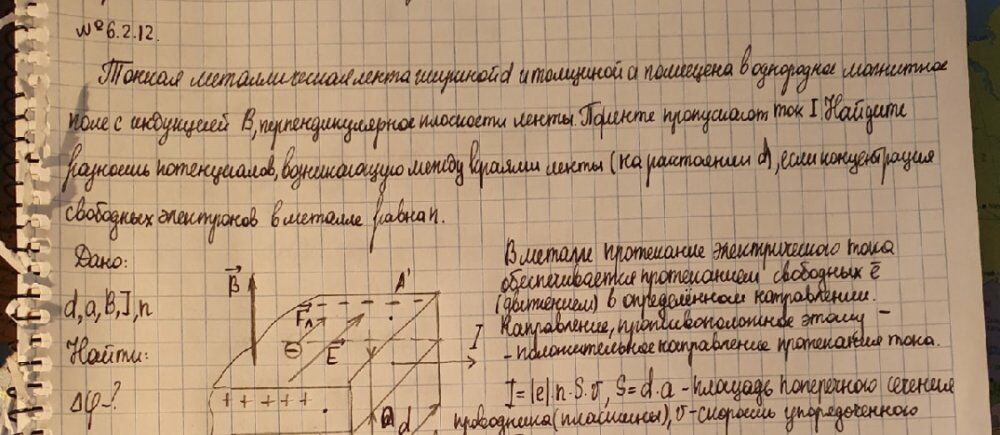 №6.2.12.
Тонкая металлическая лента шириной d и толщиной a помещена в однородное магнитное
поле с индукцией B, перпендикулярное плоскости ленты. По ленте пропускают ток I. Найдите
разность потенциалов, возникающую между краями ленты (на растоянии d), если концентрация
свободных электронов в металле равна n.
Дано:
d, a, B, I, n
Найти:
Δφ-?
B⃗
A'
Fл
⊖
E⃗
I
+ + + + +
a
d
В металле протекание электрического тока
обеспечивается протеканием свободных ē
(движением) в определённом направлении.
Направление, противоположное этому –
- положительное направление протекания тока.
I=|e|·n·S·v, S=d·a - площадь поперечного сечения
проводника (пластины), v-скорость упорядоченного